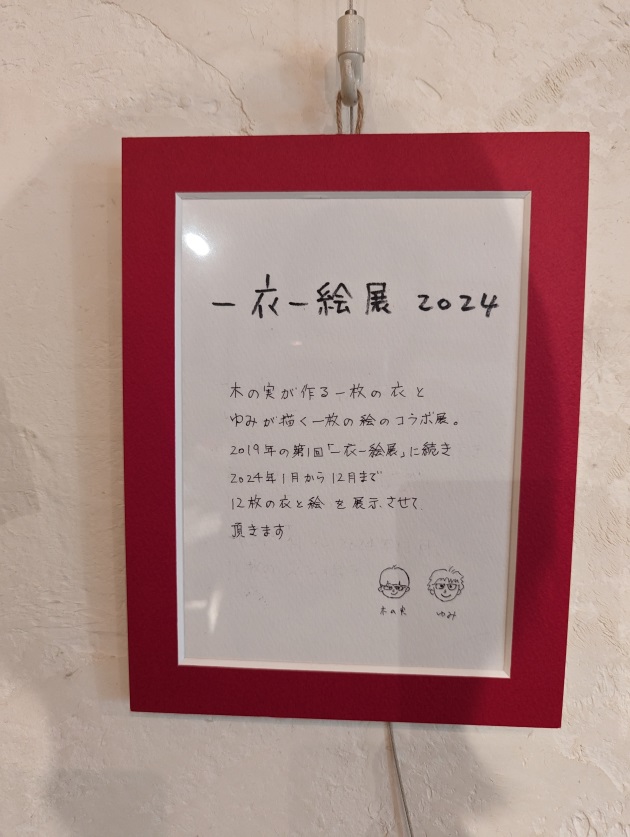 一衣一絵展 2024
木の実が作る一枚の衣と
ゆみが描く一枚の絵のコラボ展。
2019年の第1回「一衣一絵展」に続き
2024年1月から12月まで
12枚の衣と絵を展示させて
頂きます
木の実 ゆみ